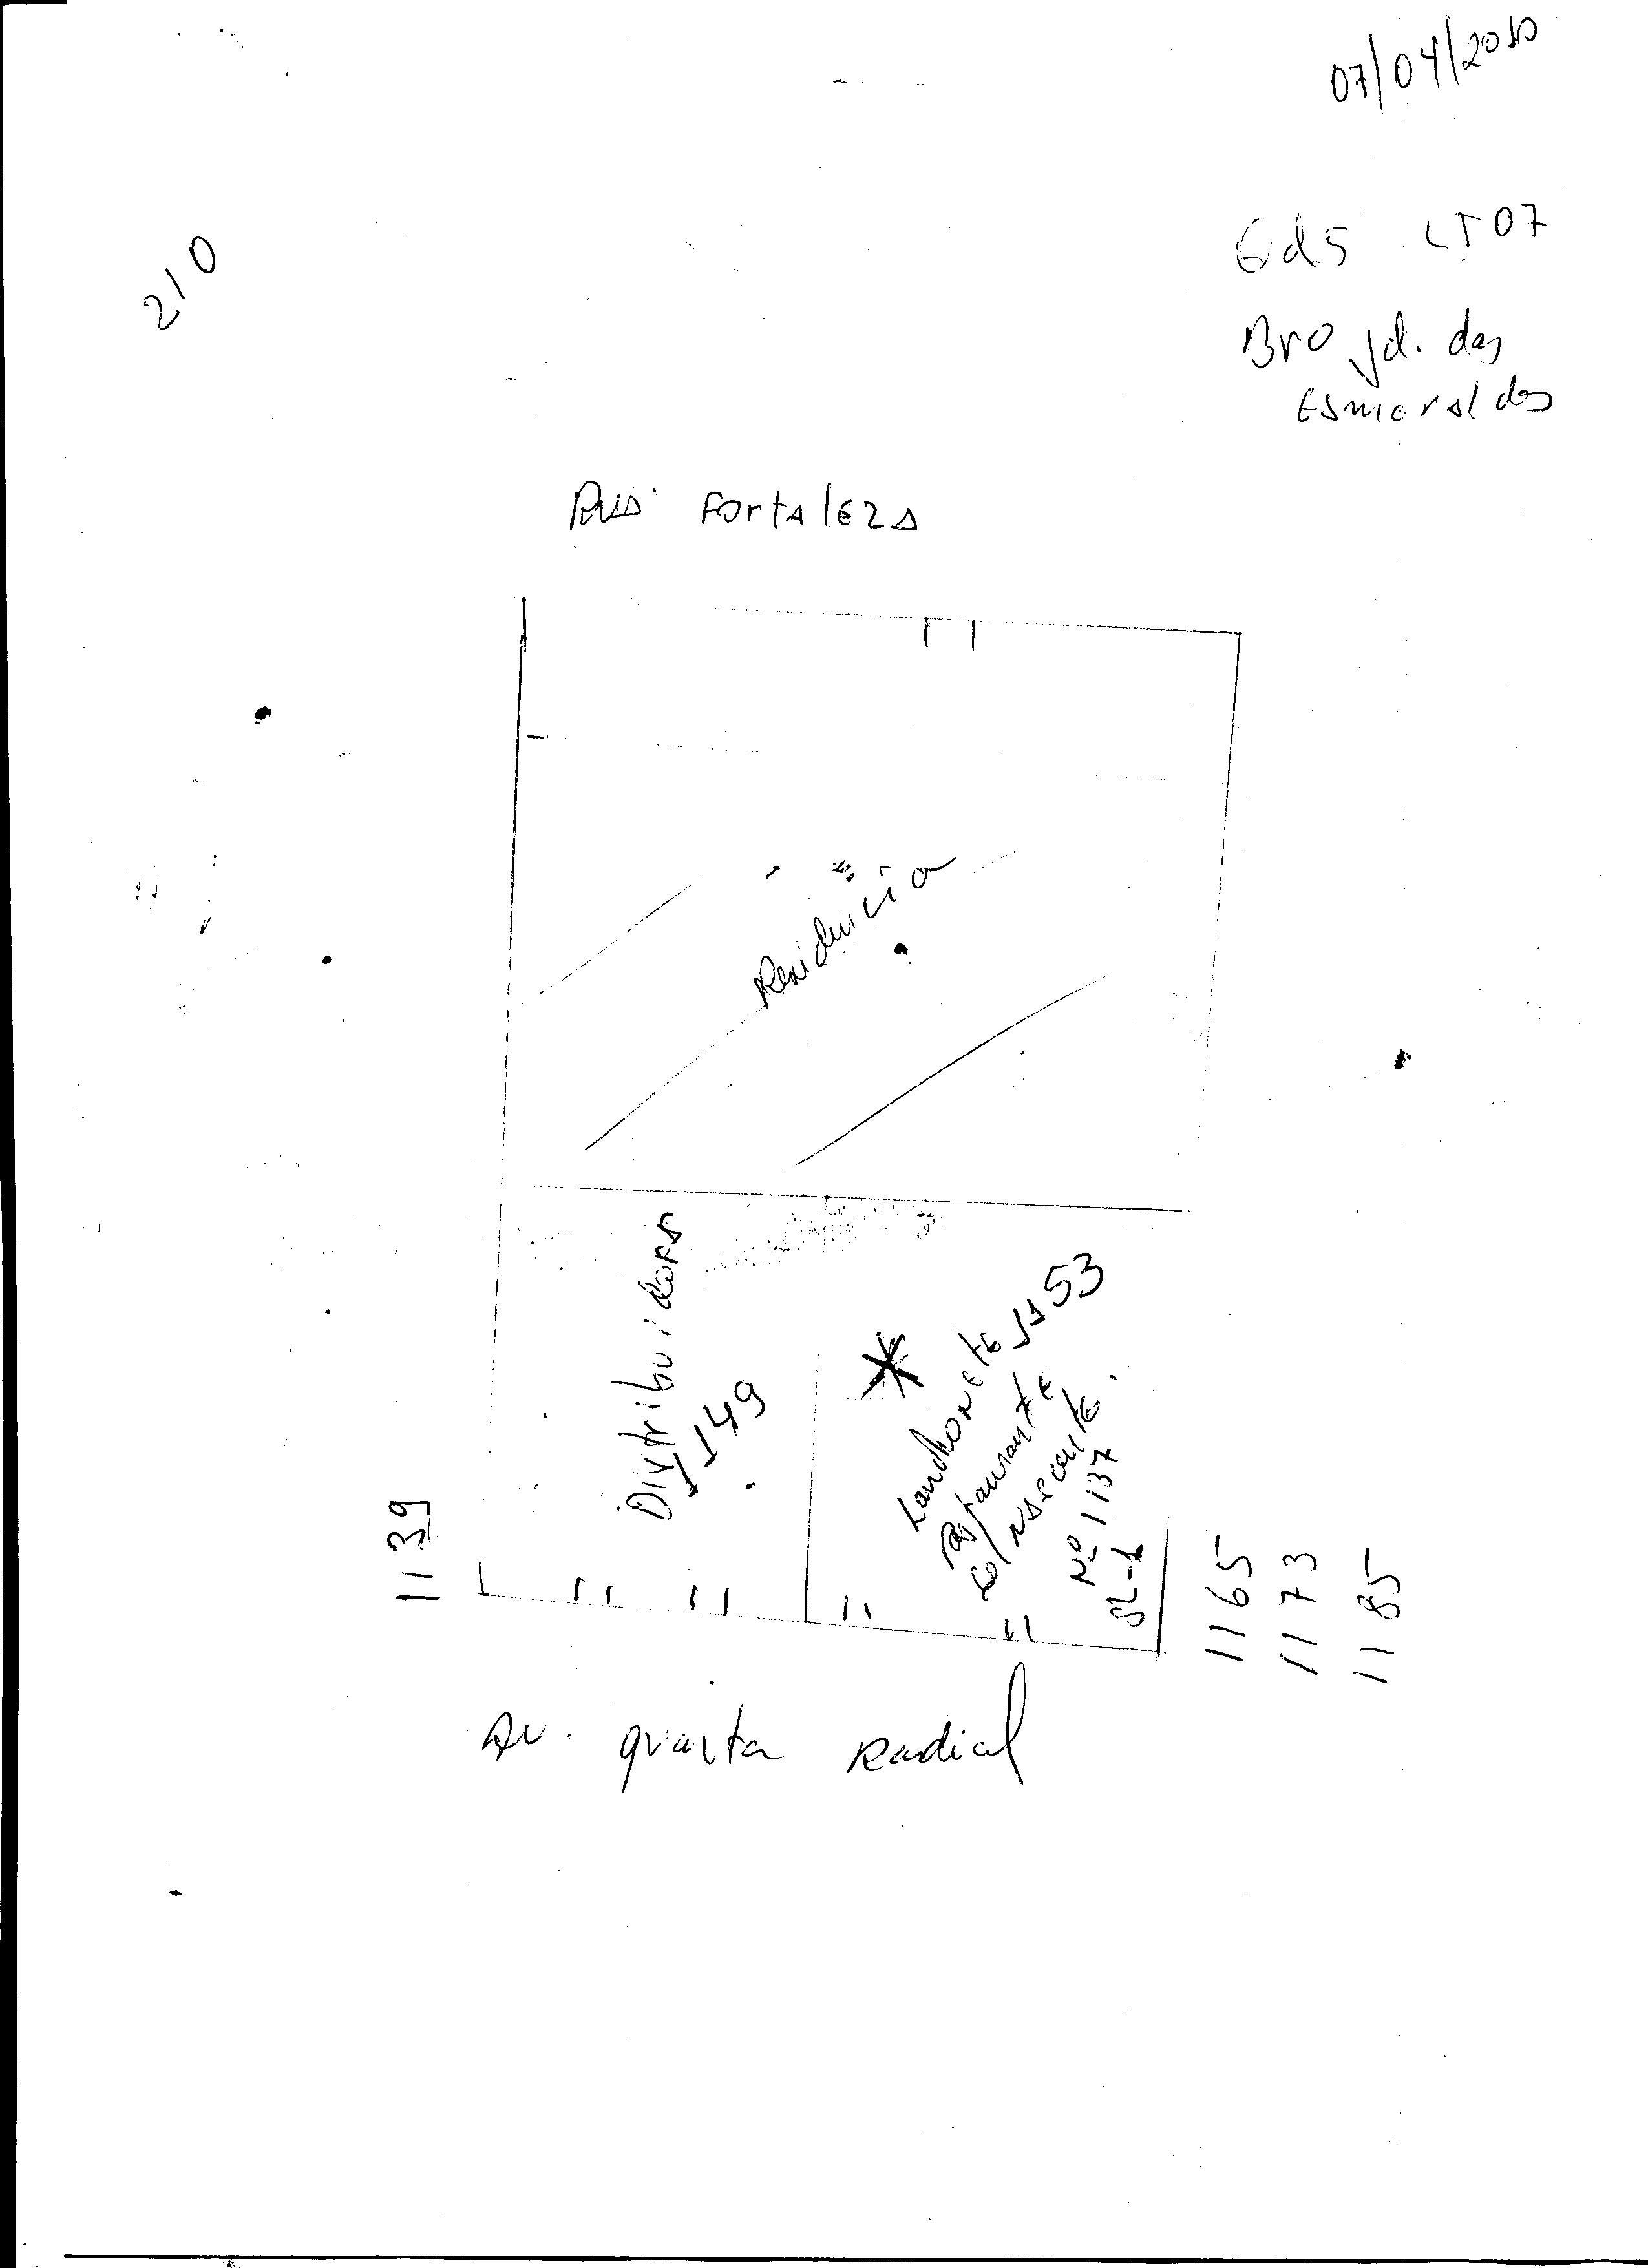 07/04/2010
210
Qd 5 LT 07
Bro Jd. das
Esmeraldas
Rua Fortaleza
Residência
Distribuidora
1149
Lanchonete 1153
Restaurante
Nº 1137
SL-1
1139
1165
1173
1185
Av. quarta Radial